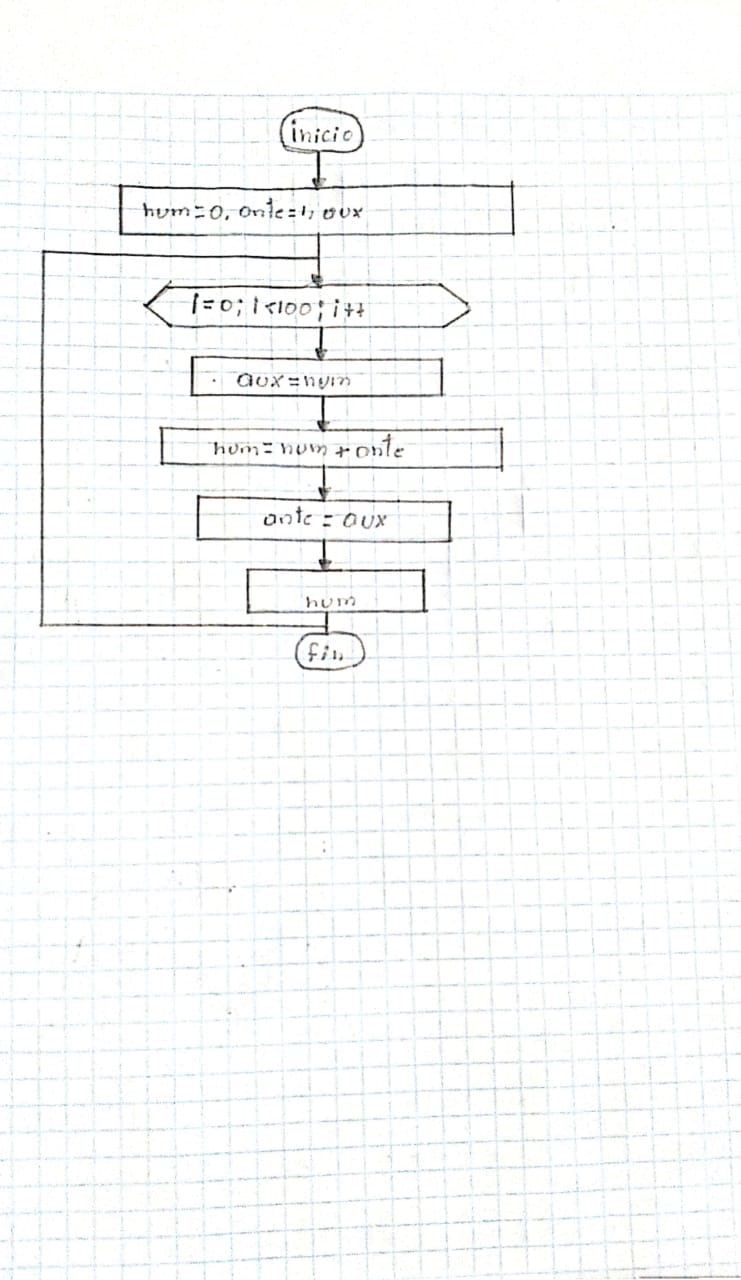 inicio
num=0, ante=1, aux
i=0; i<100; i++
aux=num
num=num+ante
ante=aux
num
fin